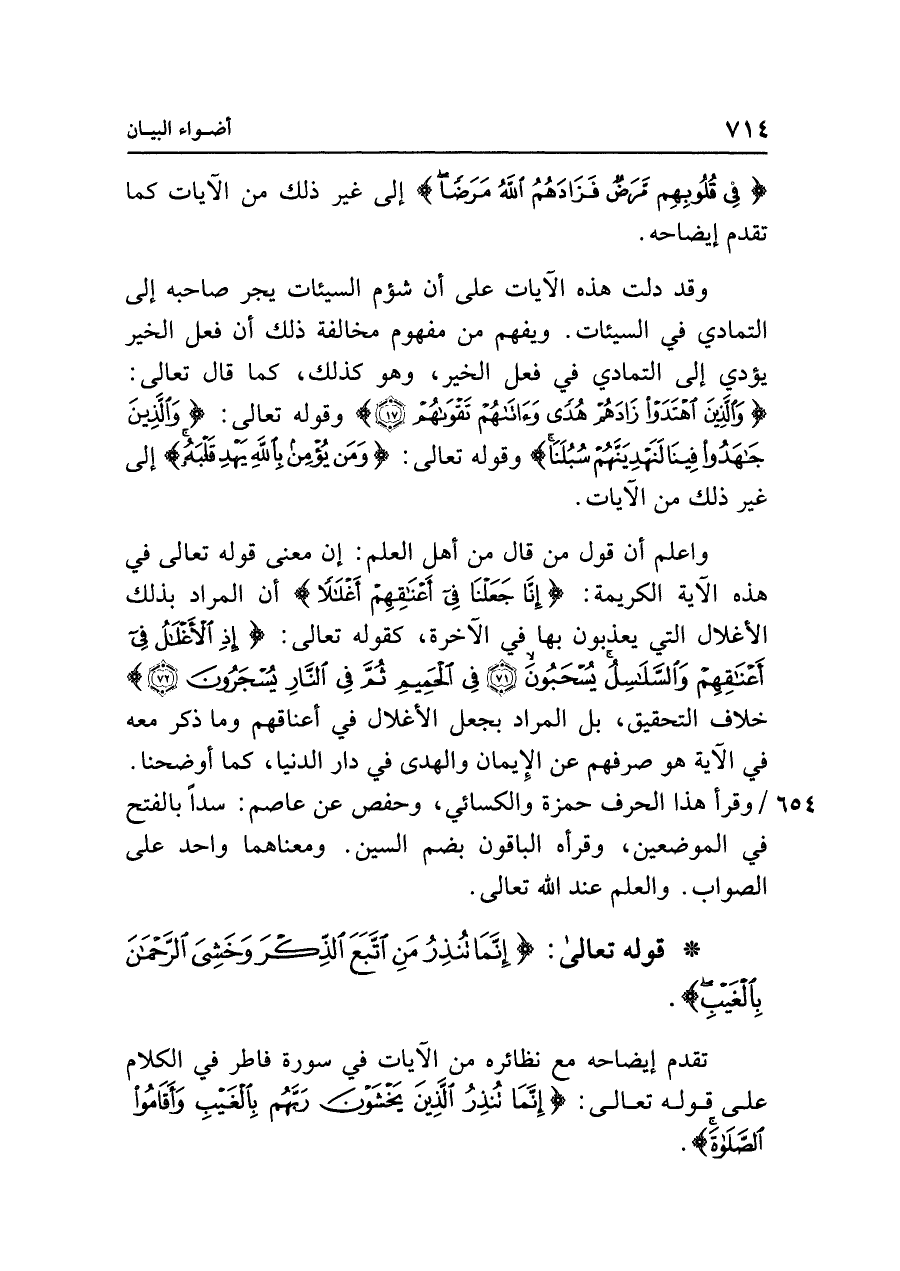 ٧١٤ أضواء البيان
﴿ فِي قُلُوبِهِم مَّرَضٌ فَزَادَهُمُ ٱللَّهُ مَرَضًاۖ ﴾ إلى غير ذلك من الآيات كما
تقدم إيضاحه.
وقد دلت هذه الآيات على أن شؤم السيئات يجر صاحبه إلى
التمادي في السيئات. ويفهم من مفهوم مخالفة ذلك أن فعل الخير
يؤدي إلى التمادي في فعل الخير، وهو كذلك، كما قال تعالى:
﴿ وَٱلَّذِينَ ٱهۡتَدَوۡاْ زَادَهُمۡ هُدٗى وَءَاتَىٰهُمۡ تَقۡوَىٰهُمۡ ١٧﴾ وقوله تعالى: ﴿ وَٱلَّذِينَ
جَٰهَدُواْ فِينَا لَنَهۡدِيَنَّهُمۡ سُبُلَنَاۚ﴾ وقوله تعالى: ﴿ وَمَن يُؤۡمِنۢ بِٱللَّهِ يَهۡدِ قَلۡبَهُۥۚ﴾ إلى
غير ذلك من الآيات.
واعلم أن قول من قال من أهل العلم: إن معنى قوله تعالى في
هذه الآية الكريمة: ﴿ إِنَّا جَعَلۡنَا فِيٓ أَعۡنَٰقِهِمۡ أَغۡلَٰلٗا ﴾ أن المراد بذلك
الأغلال التي يعذبون بها في الآخرة، كقوله تعالى: ﴿ إِذِ ٱلۡأَغۡلَٰلُ فِيٓ
أَعۡنَٰقِهِمۡ وَٱلسَّلَٰسِلُ يُسۡحَبُونَ ٧١ فِي ٱلۡحَمِيمِ ثُمَّ فِي ٱلنَّارِ يُسۡجَرُونَ ٧٢ ﴾
خلاف التحقيق، بل المراد بجعل الأغلال في أعناقهم وما ذكر معه
في الآية هو صرفهم عن الإيمان والهدى في دار الدنيا، كما أوضحنا.
٦٥٤ / وقرأ هذا الحرف حمزة والكسائي، وحفص عن عاصم: سداً بالفتح
في الموضعين، وقرأه الباقون بضم السين. ومعناهما واحد على
الصواب. والعلم عند الله تعالى.
* قوله تعالىٰ: ﴿ إِنَّمَا تُنذِرُ مَنِ ٱتَّبَعَ ٱلذِّكۡرَ وَخَشِيَ ٱلرَّحۡمَٰنَ
بِٱلۡغَيۡبِۖ﴾.
تقدم إيضاحه مع نظائره من الآيات في سورة فاطر في الكلام
على قوله تعالى: ﴿ إِنَّمَا تُنذِرُ ٱلَّذِينَ يَخۡشَوۡنَ رَبَّهُم بِٱلۡغَيۡبِ وَأَقَامُواْ
ٱلصَّلَوٰةَۚ﴾.